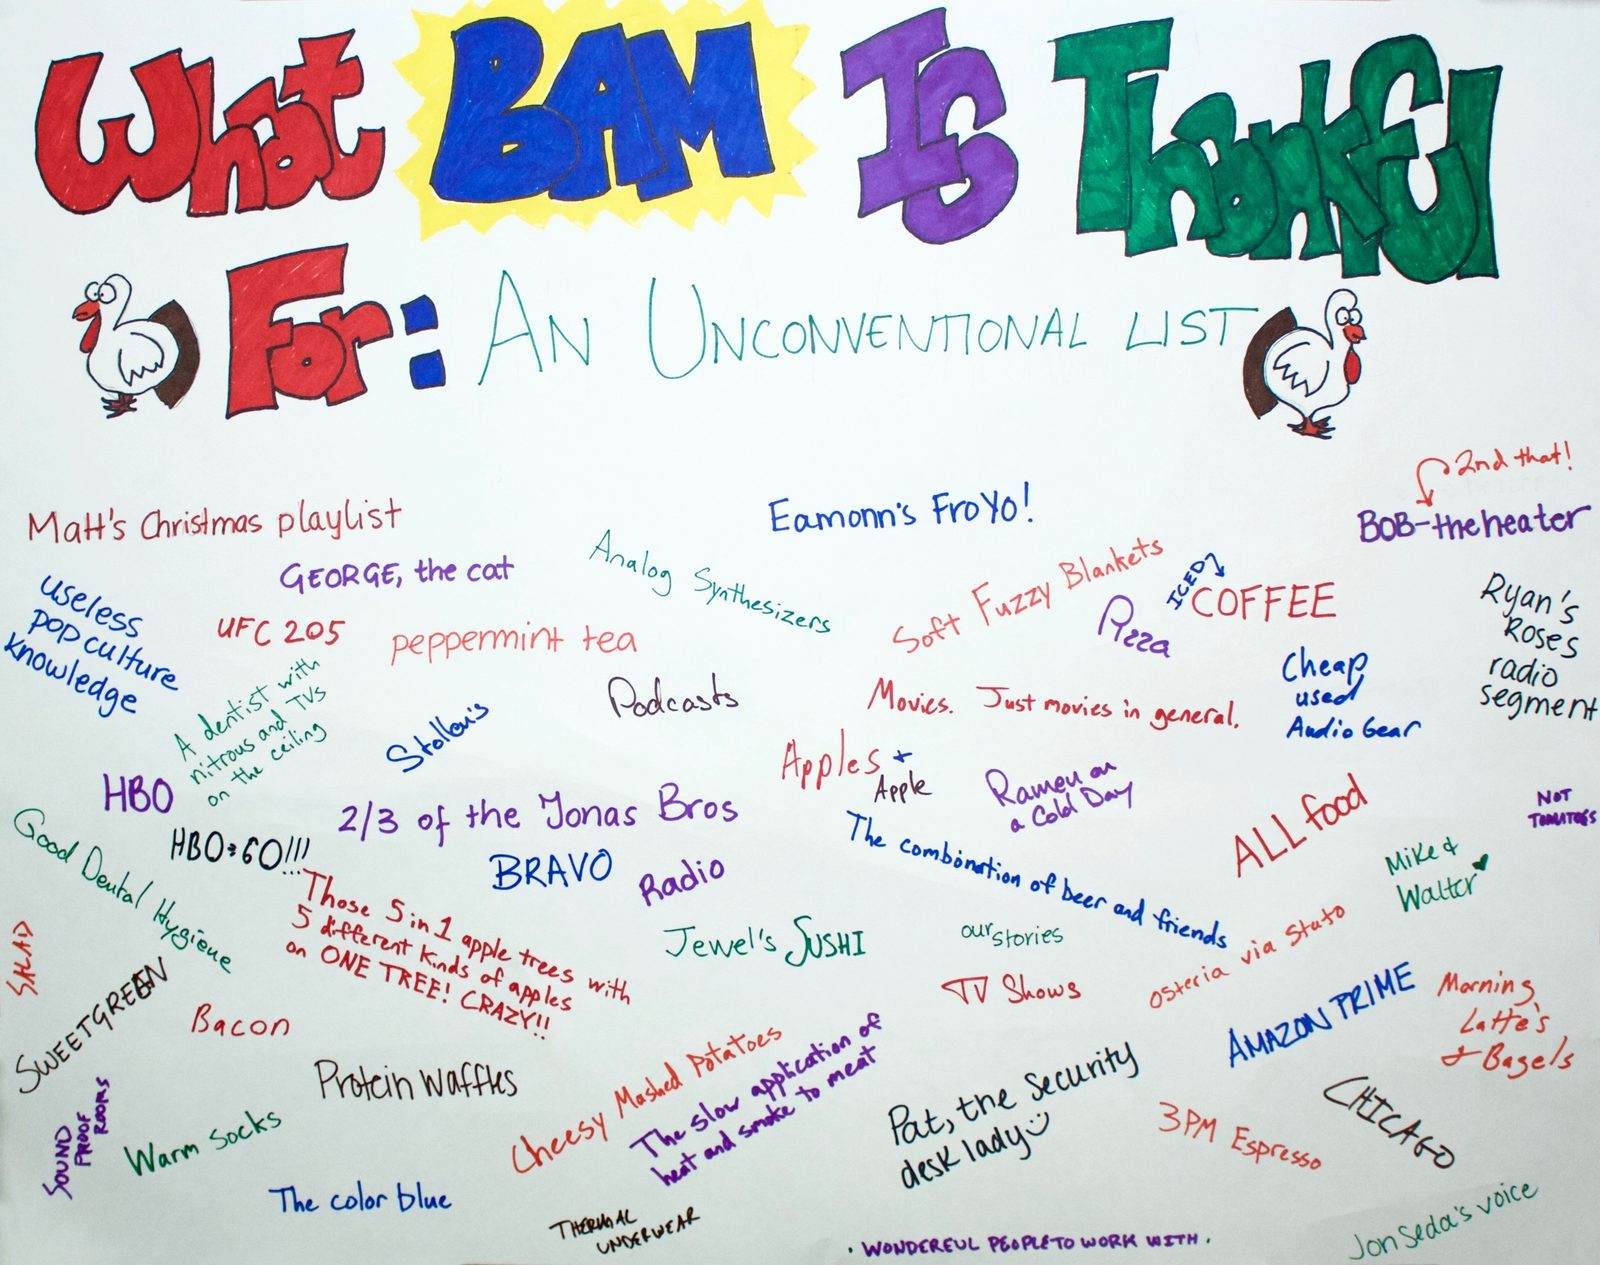 What BAM Is Thankful
For: An Unconventional List
2nd that!
Matt's Christmas playlist
Eamonn's FroYo!
BOB-the heater
GEORGE, the cat
Analog Synthesizers
Soft Fuzzy Blankets
ICED
COFFEE
Pizza
useless
pop culture
knowledge
UFC 205
peppermint tea
Ryan's
Roses
radio
segment
A dentist with
nitrous and TVs
on the ceiling
Podcasts
Movies. Just movies in general.
Cheap
used
Audio Gear
Apples +
Apple
HBO
2/3 of the Jonas Bros
Ramen on
a Cold Day
ALL food
NOT
TOMATOES
Good Dental Hygiene
HBO GO!!!
BRAVO
Radio
The combination of beer and friends
Mike &
Walter
Those 5 in 1 apple trees with
5 different kinds of apples
on ONE TREE! CRAZY!!
Jewel's SUSHI
our stories
osteria via stato
SALAD
SWEETGREEN
Bacon
TV Shows
AMAZON PRIME
Morning
Latte's
& Bagels
Protein Waffles
Cheesy Mashed Potatoes
The slow application of
heat and smoke to meat
Pat, the security
desk lady
3PM Espresso
CHICAGO
SOUND
PROOF
ROOMS
Warm Socks
The color blue
THERMAL
UNDERWEAR
. WONDERFUL PEOPLE TO WORK WITH .
Jon Seda's voice